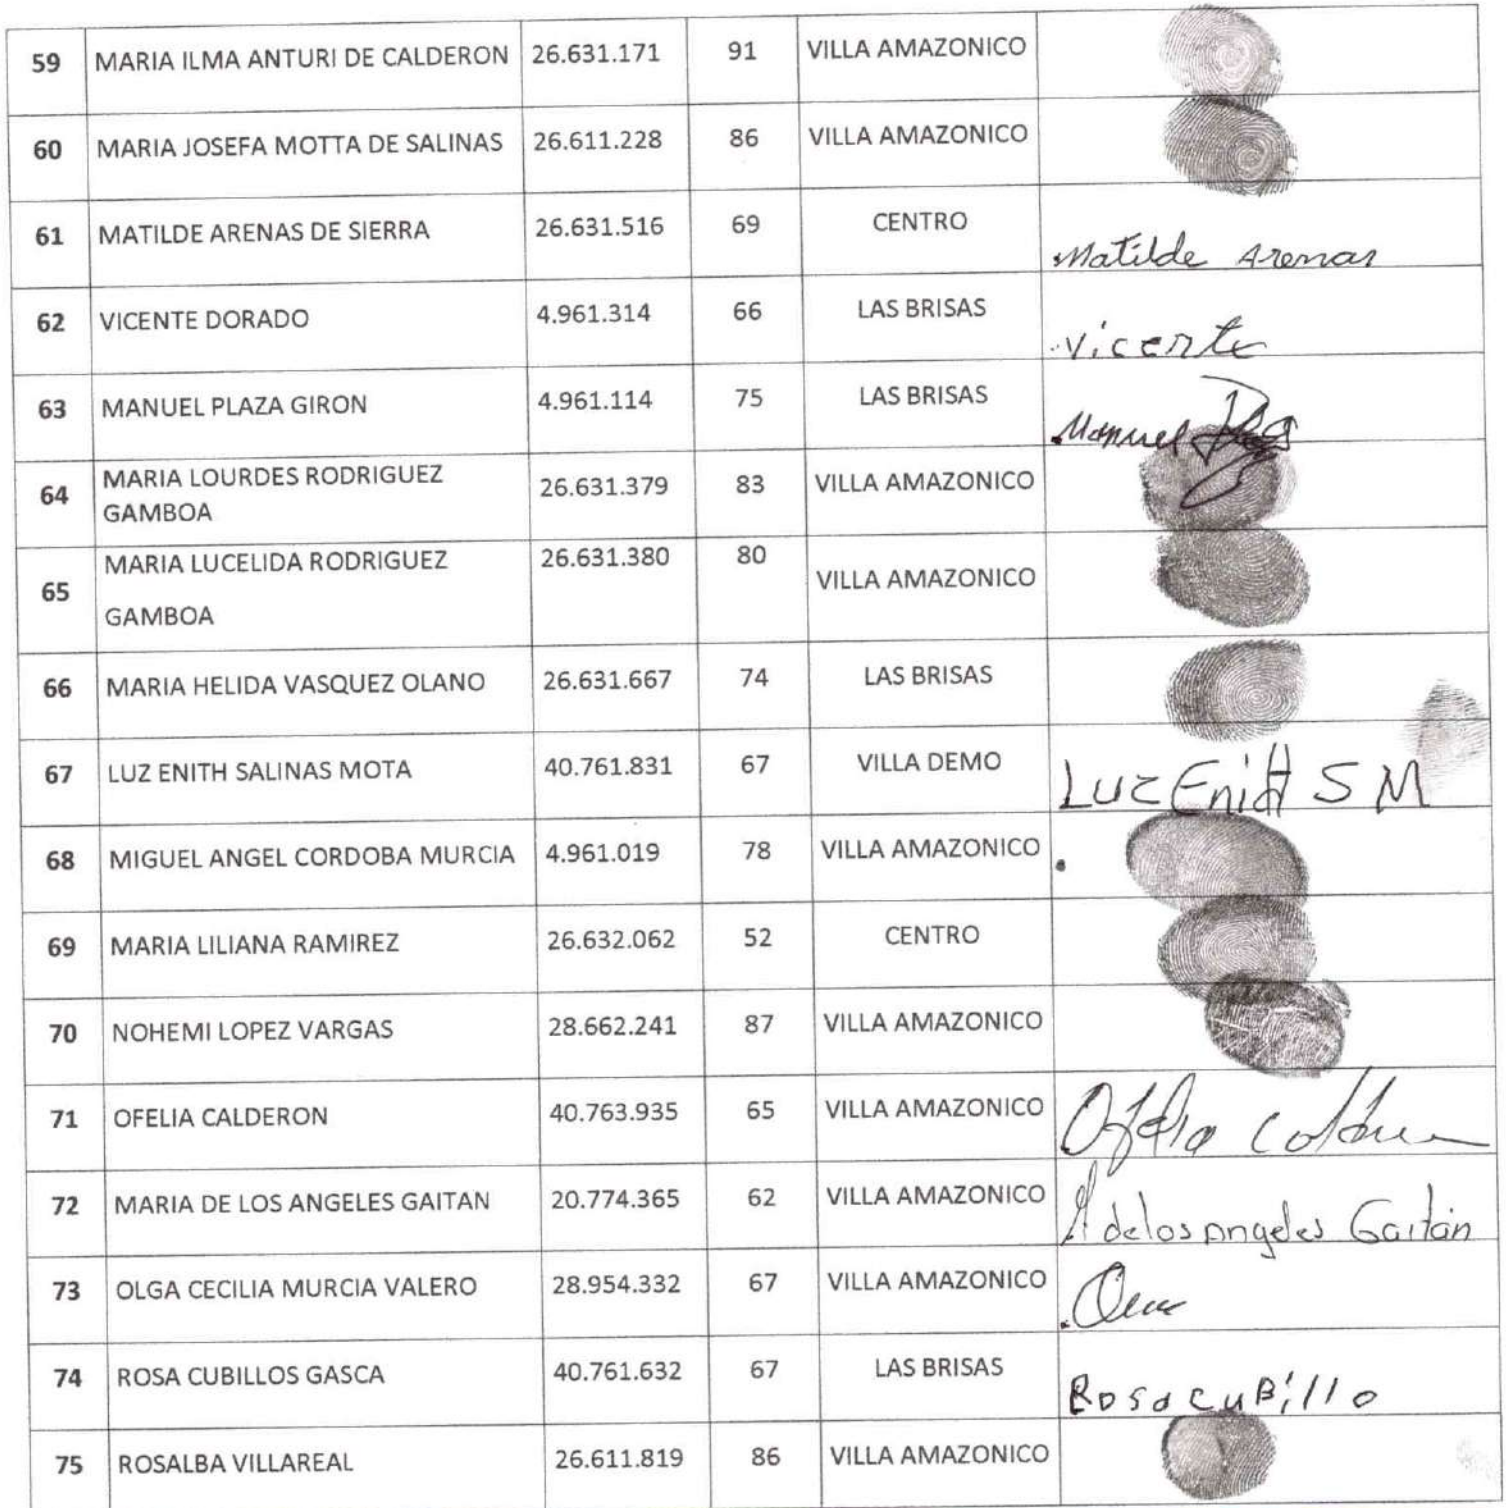 59 MARIA ILMA ANTURI DE CALDERON 26.631.171 91 VILLA AMAZONICO
60 MARIA JOSEFA MOTTA DE SALINAS 26.611.228 86 VILLA AMAZONICO
61 MATILDE ARENAS DE SIERRA 26.631.516 69 CENTRO Matilde Arenas
62 VICENTE DORADO 4.961.314 66 LAS BRISAS Vicente
63 MANUEL PLAZA GIRON 4.961.114 75 LAS BRISAS Manuel
64 MARIA LOURDES RODRIGUEZ 26.631.379 83 VILLA AMAZONICO
GAMBOA
65 MARIA LUCELIDA RODRIGUEZ 26.631.380 80 VILLA AMAZONICO
GAMBOA
66 MARIA HELIDA VASQUEZ OLANO 26.631.667 74 LAS BRISAS
67 LUZ ENITH SALINAS MOTA 40.761.831 67 VILLA DEMO Luz Enith S M
68 MIGUEL ANGEL CORDOBA MURCIA 4.961.019 78 VILLA AMAZONICO
69 MARIA LILIANA RAMIREZ 26.632.062 52 CENTRO
70 NOHEMI LOPEZ VARGAS 28.662.241 87 VILLA AMAZONICO
71 OFELIA CALDERON 40.763.935 65 VILLA AMAZONICO Ofelia Calderon
72 MARIA DE LOS ANGELES GAITAN 20.774.365 62 VILLA AMAZONICO M de los Angeles Gaitán
73 OLGA CECILIA MURCIA VALERO 28.954.332 67 VILLA AMAZONICO
74 ROSA CUBILLOS GASCA 40.761.632 67 LAS BRISAS Rosa cuBillo
75 ROSALBA VILLAREAL 26.611.819 86 VILLA AMAZONICO